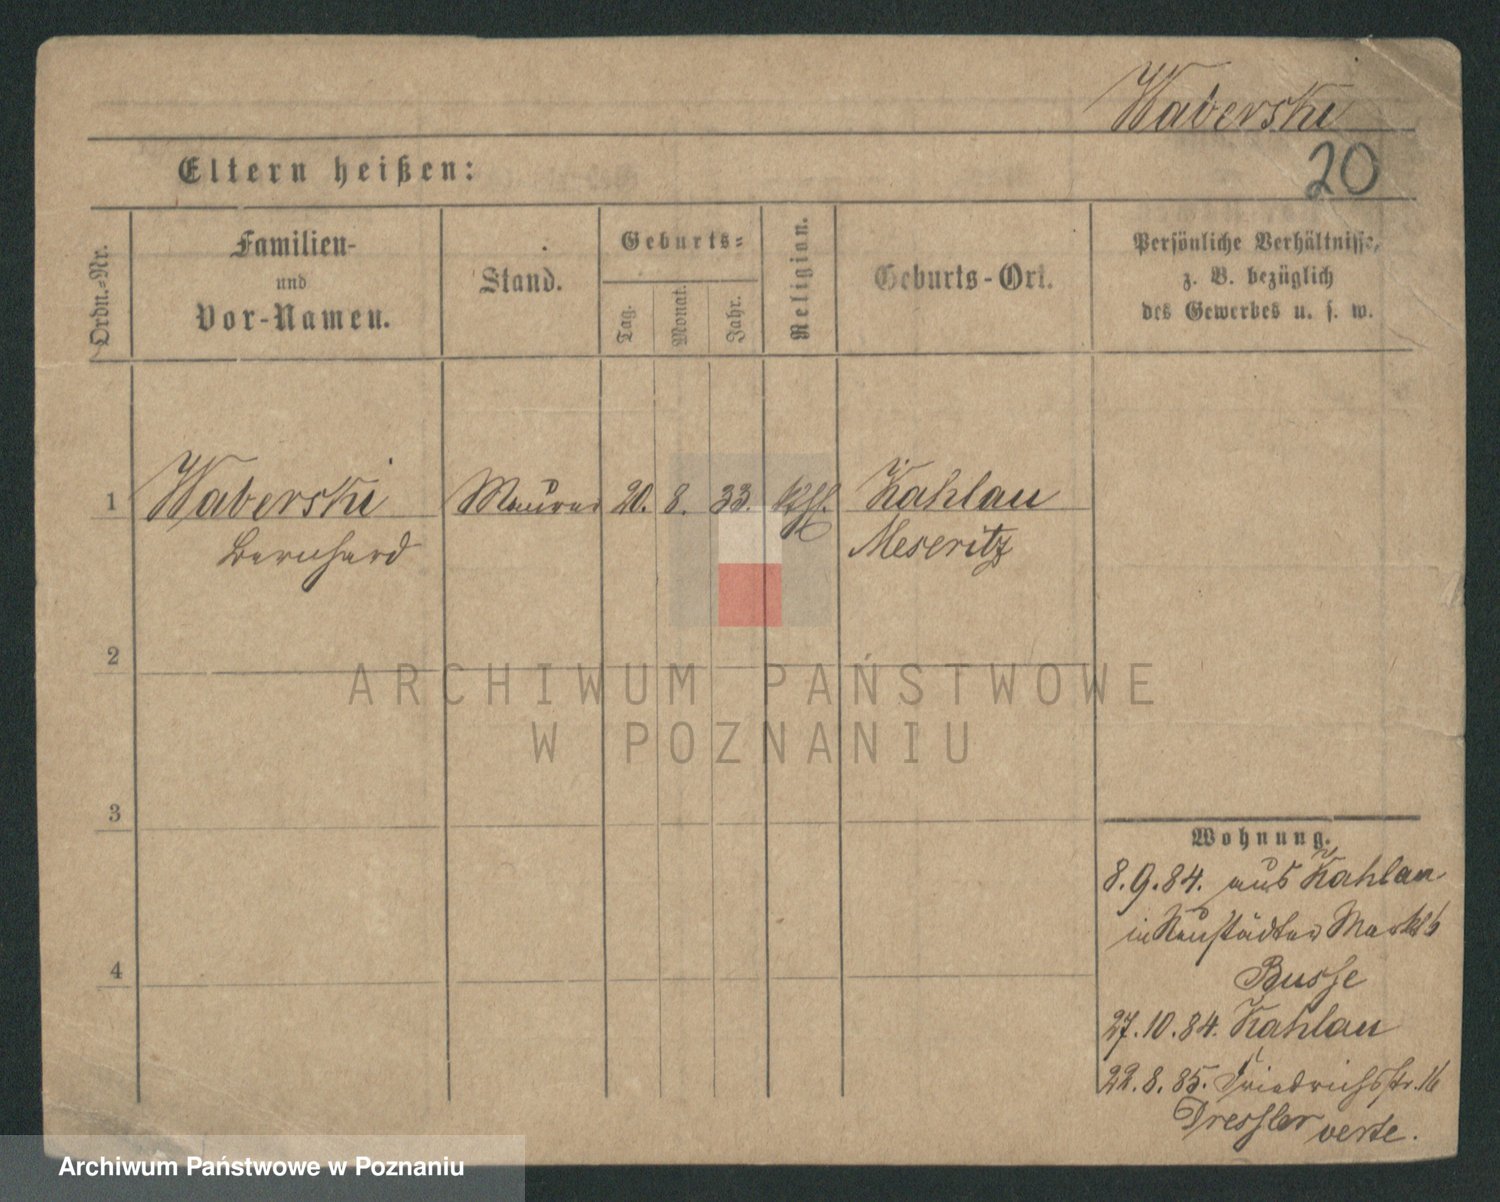 Waberski
20
Eltern heißen:
Ordn.-Nr.
Familien-
und
Vor-Namen.
Stand.
Geburts-
Tag.
Monat.
Jahr.
Religion.
Geburts-Ort.
Persönliche Verhältnisse,
z. B. bezüglich
des Gewerbes u. s. w.
1 Waberski Maurer 20. 8. 33. kath. Kahlau
Bernhard Meseritz
2
3
4
Wohnung.
8.9.84. aus Kahlau
in Neustädter Markt 6
Busse
27.10.84. Kahlau
22.8.85. Friedrichsstr. 16
Dressler verte.
ARCHIWUM PAŃSTWOWE
W POZNANIU
Archiwum Państwowe w Poznaniu